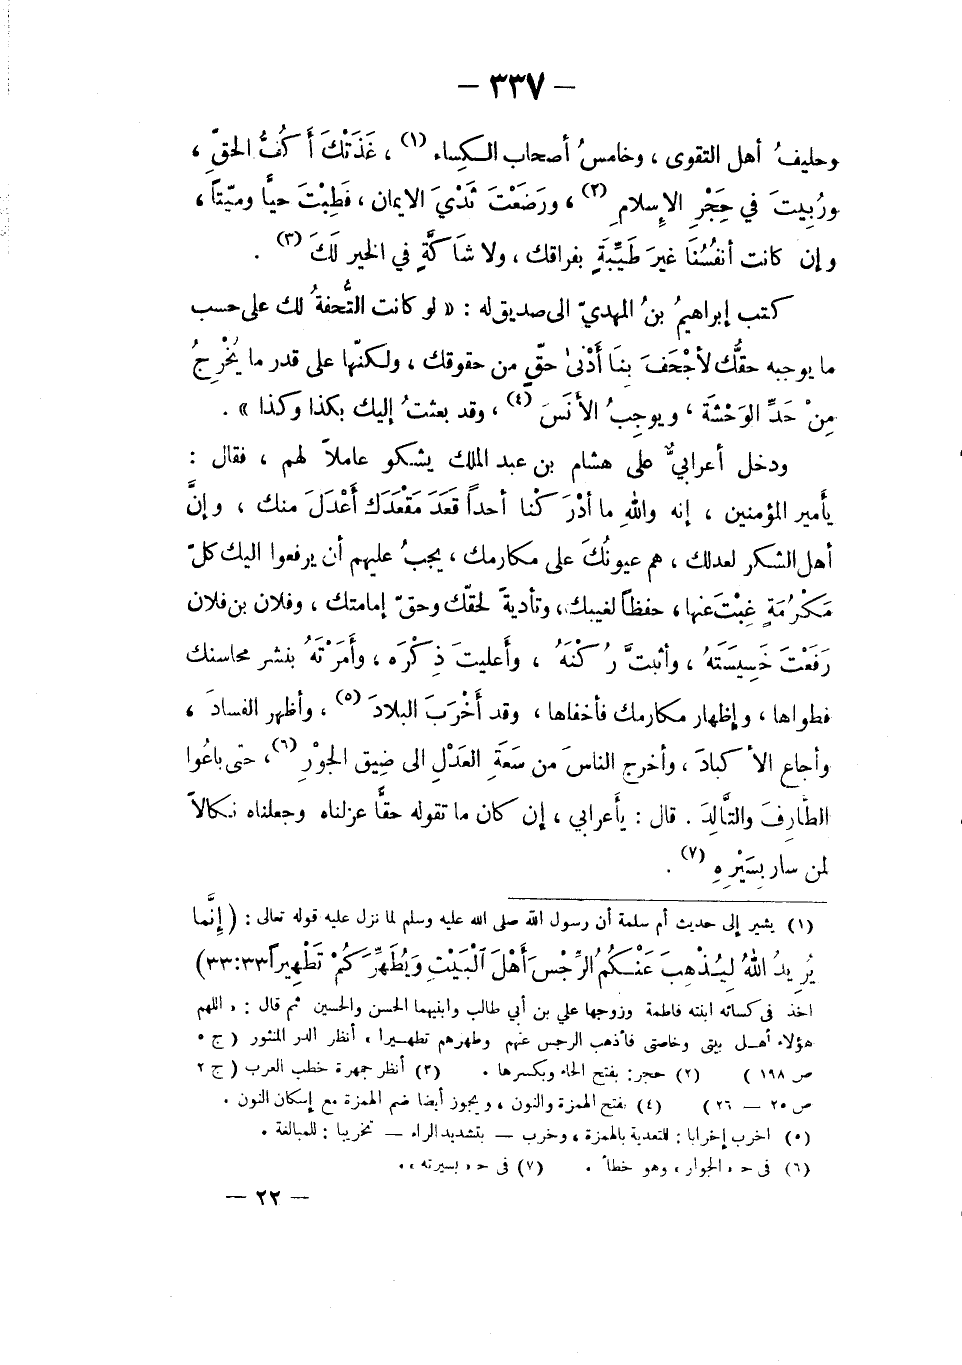 — ٣٣٧ —
وحليفُ أهل التقوى ، وخامسُ أصحاب الكِساء (١) ، غَذَتْكَ أَكُفُّ الحقِّ ،
ورُبِيتَ في حِجْرِ الإِسلامِ (٢) ، ورَضَعْتَ ثَدْيَ الايمان ، فَطِبْتَ حيًّا وميّتاً ،
وإن كانت أنفُسُنَا غيرَ طَيِّبَةٍ بفراقك ، ولا شاكَّةٍ في الخير لَكَ (٣) .
كتب إبراهيمُ بنُ المهديّ الى صديق له : « لو كانت التُّحفةُ لك على حسب
ما يوجبه حقُّك لأجْحَفَ بِنَا أَدْنىٰ حقّ من حقوقك ، ولكنّها على قدر ما يُخْرِجُ
مِنْ حَدِّ الوَحْشَة ، ويوجِبُ الأَنَسَ (٤) ، وقد بعثتُ إليك بكذا وكذا » .
ودخل أعرابيٌّ على هشام بن عبد الملك يشكو عاملاً لهم ، فقال :
يأمير المؤمنين ، إنه واللهِ ما أدْرَكْنا أحداً قَعَدَ مَقْعَدَك أَعْدَلَ منك ، وإنَّ
أهل الشكر لعدلك ، هم عيونُكَ على مكارمك ، يجبُ عليهم أن يرفعوا اليك كلّ
مَكْرُمَةٍ غِبْتَ عنها ، حفظاً لغيبك ، وتأديةً لحقّك وحقّ إمامتك ، وفلان بن فلان
رَفَعْتَ خَسِيسَتَهُ ، وأثبتَّ رُكْنَهُ ، وأعليتَ ذِكْرَه ، وأمَرْتَهُ بنشر محاسنك
فطواها ، وإظهار مكارمك فأخفاها ، وقد أَخْرَبَ البلادَ (٥) ، وأظهر الفسادَ ،
وأجاع الأكبادَ ، وأخرج الناسَ من سَعَةِ العَدْلِ الى ضِيق الجَوْرِ (٦) ، حتى باعُوا
الطَّارِفَ والتَّالِدَ . قال : يأعرابي ، إن كان ما تقوله حقًّا عزلناه وجعلناه نكالاً
لمن سار بِسَيْرِهِ (٧) .
(١) يشير إلى حديث أم سلمة أن رسول الله صلى الله عليه وسلم لما نزل عليه قوله تعالى : ( إِنَّما
يُرِيدُ اللهُ لِيُذْهِبَ عَنْكُمُ الرِّجْسَ أَهْلَ الْبَيْتِ وَيُطَهِّرَكُمْ تَطْهِيراً ٣٣:٣٣)
اخذ فى كسائه ابنته فاطمة وزوجها علي بن أبي طالب وابنيهما الحسن والحسين ثم قال : « اللهم
هؤلاء أهل بيتى وخاصتى فأذهب الرجس عنهم وطهرهم تطهيرا » أنظر الدر المنثور ( ج ٥
ص ١٩٨ ) (٢) حجر: بفتح الحاء وبكسرها . (٣) أنظر جمهرة خطب العرب ( ج ٢
ص ٢٥ — ٢٦ ) (٤) بفتح الهمزة والنون ، ويجوز أيضا ضم الهمزة مع إسكان النون .
(٥) اخرب إخرابا : للتعدية بالهمزة ، وخرب — بتشديد الراء — تخريبا : للمبالغة .
(٦) فى ح « الجوار » وهو خطأ . (٧) فى ح « بسيرته » .
— ٢٢ —